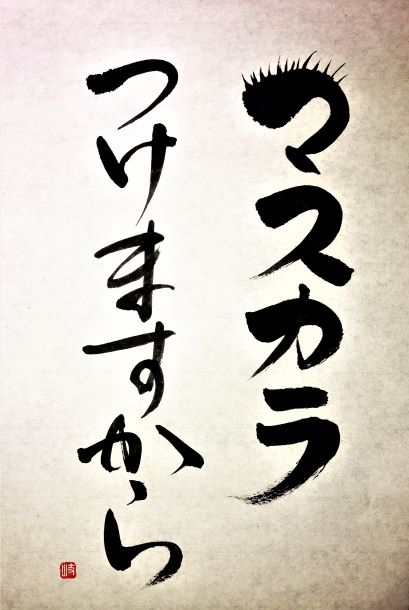 マスカラ
つけますから